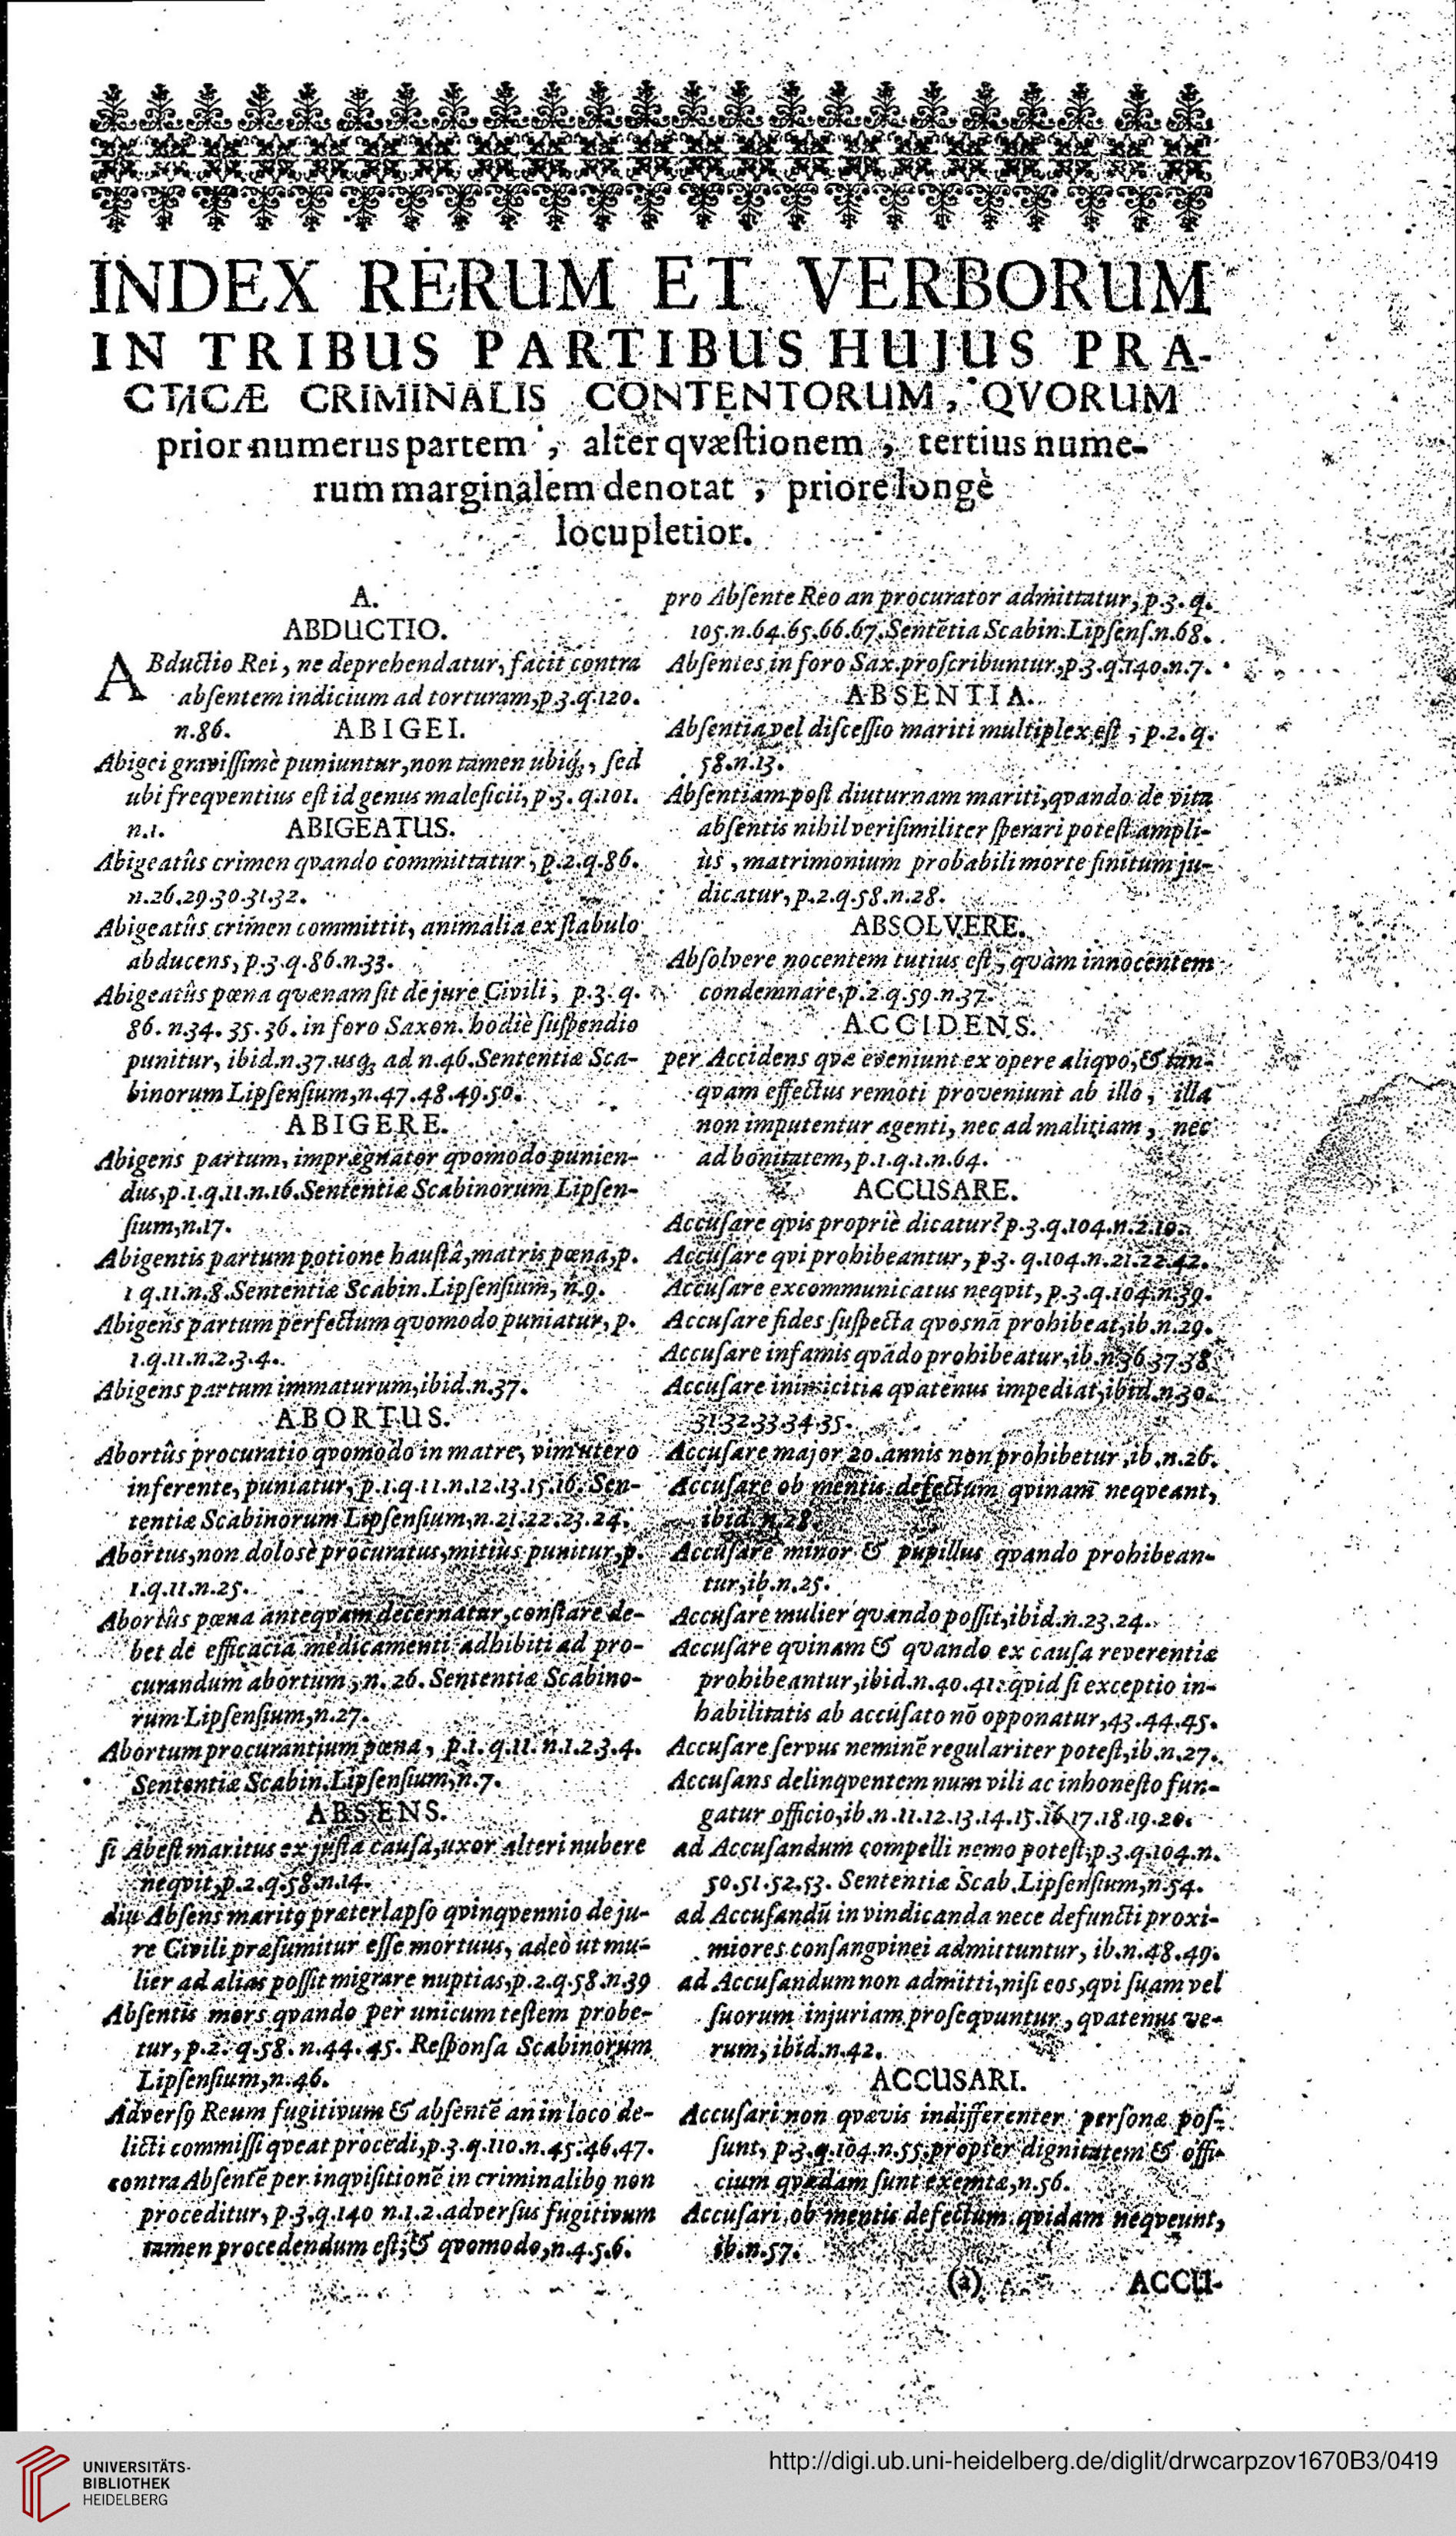 INDEX RERUM ET VERBORUM
IN TRIBUS PARTIBUS HUJUS PRA-
CTICÆ CRIMINALIS CONTENTORUM, QVORUM
prior numerus partem, alter qvæſtionem, tertius nume-
rum marginalem denotat, priore longè
locupletior.
A.
ABDUCTIO.
ABductio Rei, ne deprehendatur, facit contra
abſentem indicium ad torturam, p.3.q.120.
n.86. ABIGEI.
Abigei graviſſimè puniuntur, non tamen ubiq;, ſed
ubi freqventius eſt id genus maleficii, p.3.q.101.
n.1. ABIGEATUS.
Abigeatûs crimen qvando committatur, p.2.q.86.
n.26.29.30.31.32.
Abigeatûs crimen committit, animalia ex ſtabulo
abducens, p.3.q.86.n.33.
Abigeatûs pœna qvænam ſit de jure Civili, p.3.q.
86. n.34. 35. 36. in foro Saxon. hodiè ſuſpendio
punitur, ibid.n.37.usq; ad n.46. Sententiæ Sca-
binorum Lipſenſium, n.47.48.49.50.
ABIGERE.
Abigens partum, imprægnator qvomodo punien-
dus, p.1.q.11.n.16. Sententiæ Scabinorum Lipſen-
ſium, n.17.
Abigentis partum potione hauſtâ, matris pœna, p.
1 q.11.n.8. Sententiæ Scabin. Lipſenſium, n.9.
Abigens partum perfectum qvomodo puniatur, p.
1.q.11.n.2.3.4.
Abigens partum immaturum, ibid.n.37.
ABORTUS.
Abortûs procuratio qvomodo in matre, vim utero
inferente, puniatur, p.1.q.11.n.12.13.15.16. Sen-
tentiæ Scabinorum Lipſenſium, n.21.22.23.24.
Abortus, non dolosè procuratus, mitiùs punitur, p.
1.q.11.n.25.
Abortûs pœna anteqvam decernatur, conſtare de-
bet de efficacia medicamenti adhibiti ad pro-
curandum abortum, n.26. Sententiæ Scabino-
rum Lipſenſium, n.27.
Abortum procurantium pœna, p.1. q.11. n.1.2.3.4.
Sententiæ Scabin. Lipſenſium, n.7.
ABSENS.
ſi Abeſt maritus ex juſta cauſa, uxor alteri nubere
neqvit, p.2.q.58.n.14.
diu Abſens maritꝰ præterlapſo qvinqvennio de ju-
re Civili præſumitur eſſe mortuus, adeò ut mu-
lier ad alias poſſit migrare nuptias, p.2.q.58.n.39
Abſentis mors qvando per unicum teſtem probe-
tur, p.2. q.58. n.44. 45. Reſponſa Scabinorum
Lipſenſium, n.46.
Adverſꝰ Reum fugitivum & abſentē an in loco de-
licti commiſſi qveat procedi, p.3.q.110.n.45.46.47.
contra Abſentē per inqviſitionē in criminalibꝰ non
proceditur, p.3.q.140 n.1.2. adverſus fugitivum
tamen procedendum eſt; & qvomodo, n.4.5.6.
pro Abſente Reo an procurator admittatur, p.3.q.
105.n.64.65.66.67. Sentētia Scabin. Lipſenſ.n.68.
Abſentes in foro Sax. proſcribuntur, p.3.q.140.n.7.
ABSENTIA.
Abſentia vel diſceſſio mariti multiplex eſt, p.2.q.
58.n.13.
Abſentiam poſt diuturnam mariti, qvando de vita
abſentis nihil veriſimiliter ſperari poteſt ampli-
ùs, matrimonium probabili morte finitum ju-
dicatur, p.2.q.58.n.28.
ABSOLVERE.
Abſolvere nocentem tutius eſt, qvàm innocentem
condemnare, p.2.q.59.n.37.
ACCIDENS.
per Accidens qvæ eveniunt ex opere aliqvo, & tan-
qvam effectus remoti proveniunt ab illo, illa
non imputentur agenti, nec ad malitiam, nec
ad bonitatem, p.1.q.1.n.64.
ACCUSARE.
Accuſare qvis propriè dicatur? p.3.q.104.n.2.10.
Accuſare qvi prohibeantur, p.3. q.104.n.21.22.42.
Accuſare excommunicatus neqvit, p.3.q.104.n.39.
Accuſare fides ſuſpecta qvosnā prohibeat, ib.n.29.
Accuſare infamis qvādo prohibeatur, ib.n.36.37.38
Accuſare inimicitia qvatenus impediat, ibid.n.30.
31.32.33.34.35.
Accuſare major 20. annis non prohibetur, ib.n.26.
Accuſare ob mentis defectum qvinam neqveant,
ibid.n.28.
Accuſare minor & pupillus qvando prohibean-
tur, ib.n.25.
Accuſare mulier qvando poſſit, ibid.n.23.24.
Accuſare qvinam & qvando ex cauſa reverentiæ
prohibeantur, ibid.n.40.41: qvid ſi exceptio in-
habilitatis ab accuſato nō opponatur, 43.44.45.
Accuſare ſervus neminē regulariter poteſt, ib.n.27.
Accuſans delinqventem num vili ac inhoneſto fun-
gatur officio, ib.n.11.12.13.14.15.16.17.18.19.20.
ad Accuſandum compelli nemo poteſt, p.3.q.104.n.
50.51.52.53. Sententiæ Scab. Lipſenſium, n.54.
ad Accuſandū in vindicanda nece defuncti proxi-
miores conſangvinei admittuntur, ib.n.48.49.
ad Accuſandum non admitti, niſi eos, qvi ſuam vel
ſuorum injuriam proſeqvuntur, qvatenus ve-
rum, ibid.n.42.
ACCUSARI.
Accuſari non qvævis indifferenter perſonæ poſ-
ſunt, p.3.q.104.n.55. propter dignitatem & offi-
cium qvædam ſunt exemtæ, n.56.
Accuſari ob mentis defectum qvidam neqveunt,
ib.n.57.
(a) ACCU-
UNIVERSITÄTS-
BIBLIOTHEK
HEIDELBERG
http://digi.ub.uni-heidelberg.de/diglit/drwcarpzov1670B3/0419